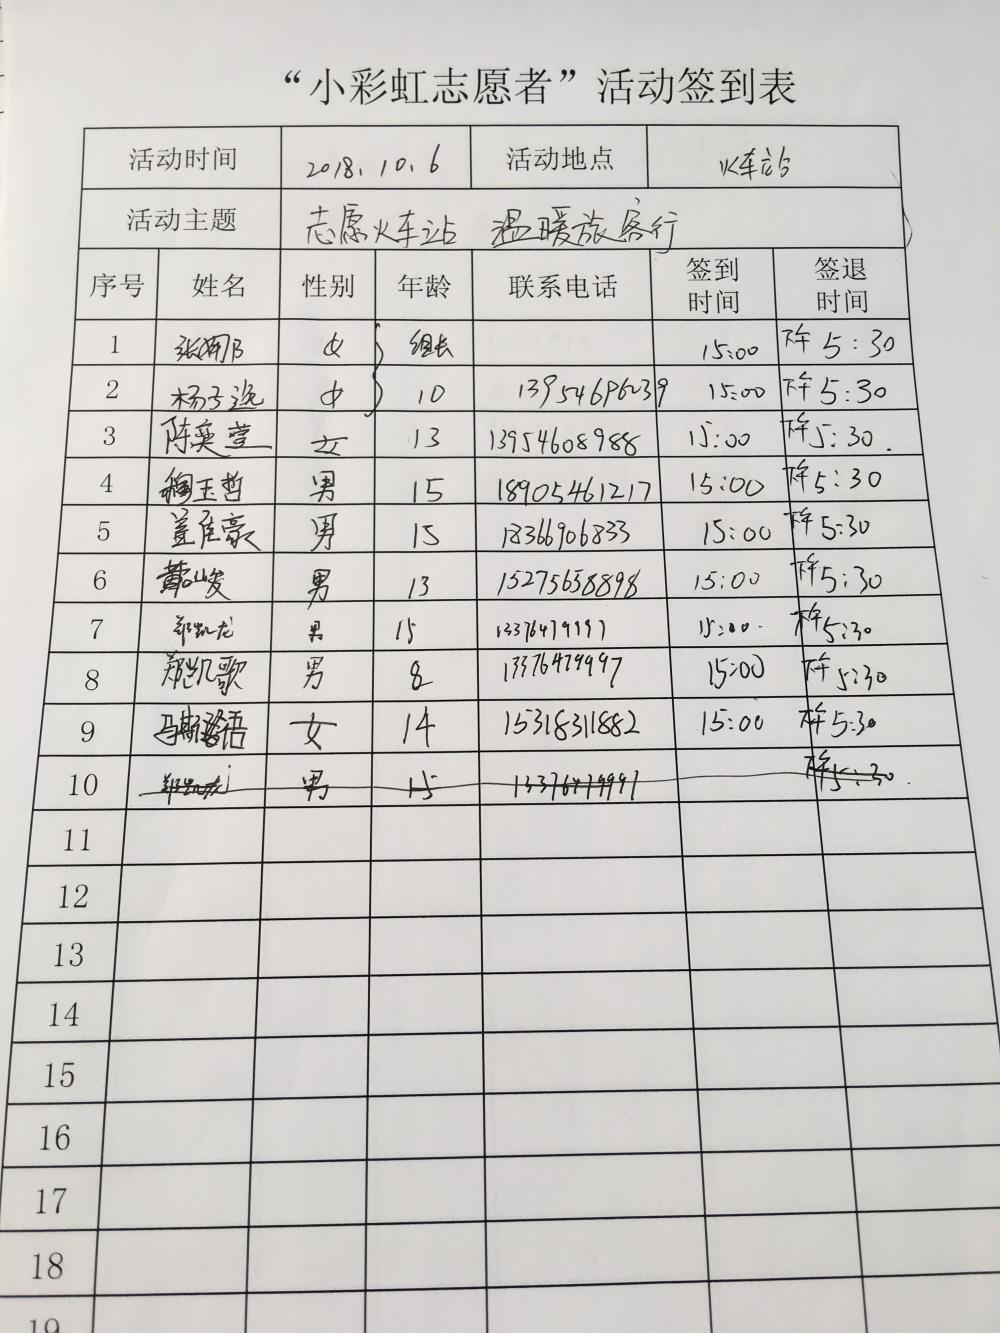 “小彩虹志愿者”活动签到表
活动时间 2018.10.6 活动地点 火车站
活动主题 志愿火车站 温暖旅客行
序号 姓名 性别 年龄 联系电话 签到时间 签退时间
1 张娜 女 组长 15:00 下午5:30
2 杨子逸 女 10 13954696239 15:00 下午5:30
3 陈奕萱 女 13 13954608988 15:00 下午5:30
4 穆玉哲 男 15 18905461217 15:00 下午5:30
5 男 15 18366906833 15:00 下午5:30
6 男 13 15275658898 15:00 下午5:30
7 郑凯龙 男 15 13376479997 15:00 下午5:30
8 郑凯歌 男 8 13376479997 15:00 下午5:30
9 女 14 15318311882 15:00 下午5:30
10 郑凯龙 男 15 13376479997 下午5:30
11
12
13
14
15
16
17
18
19